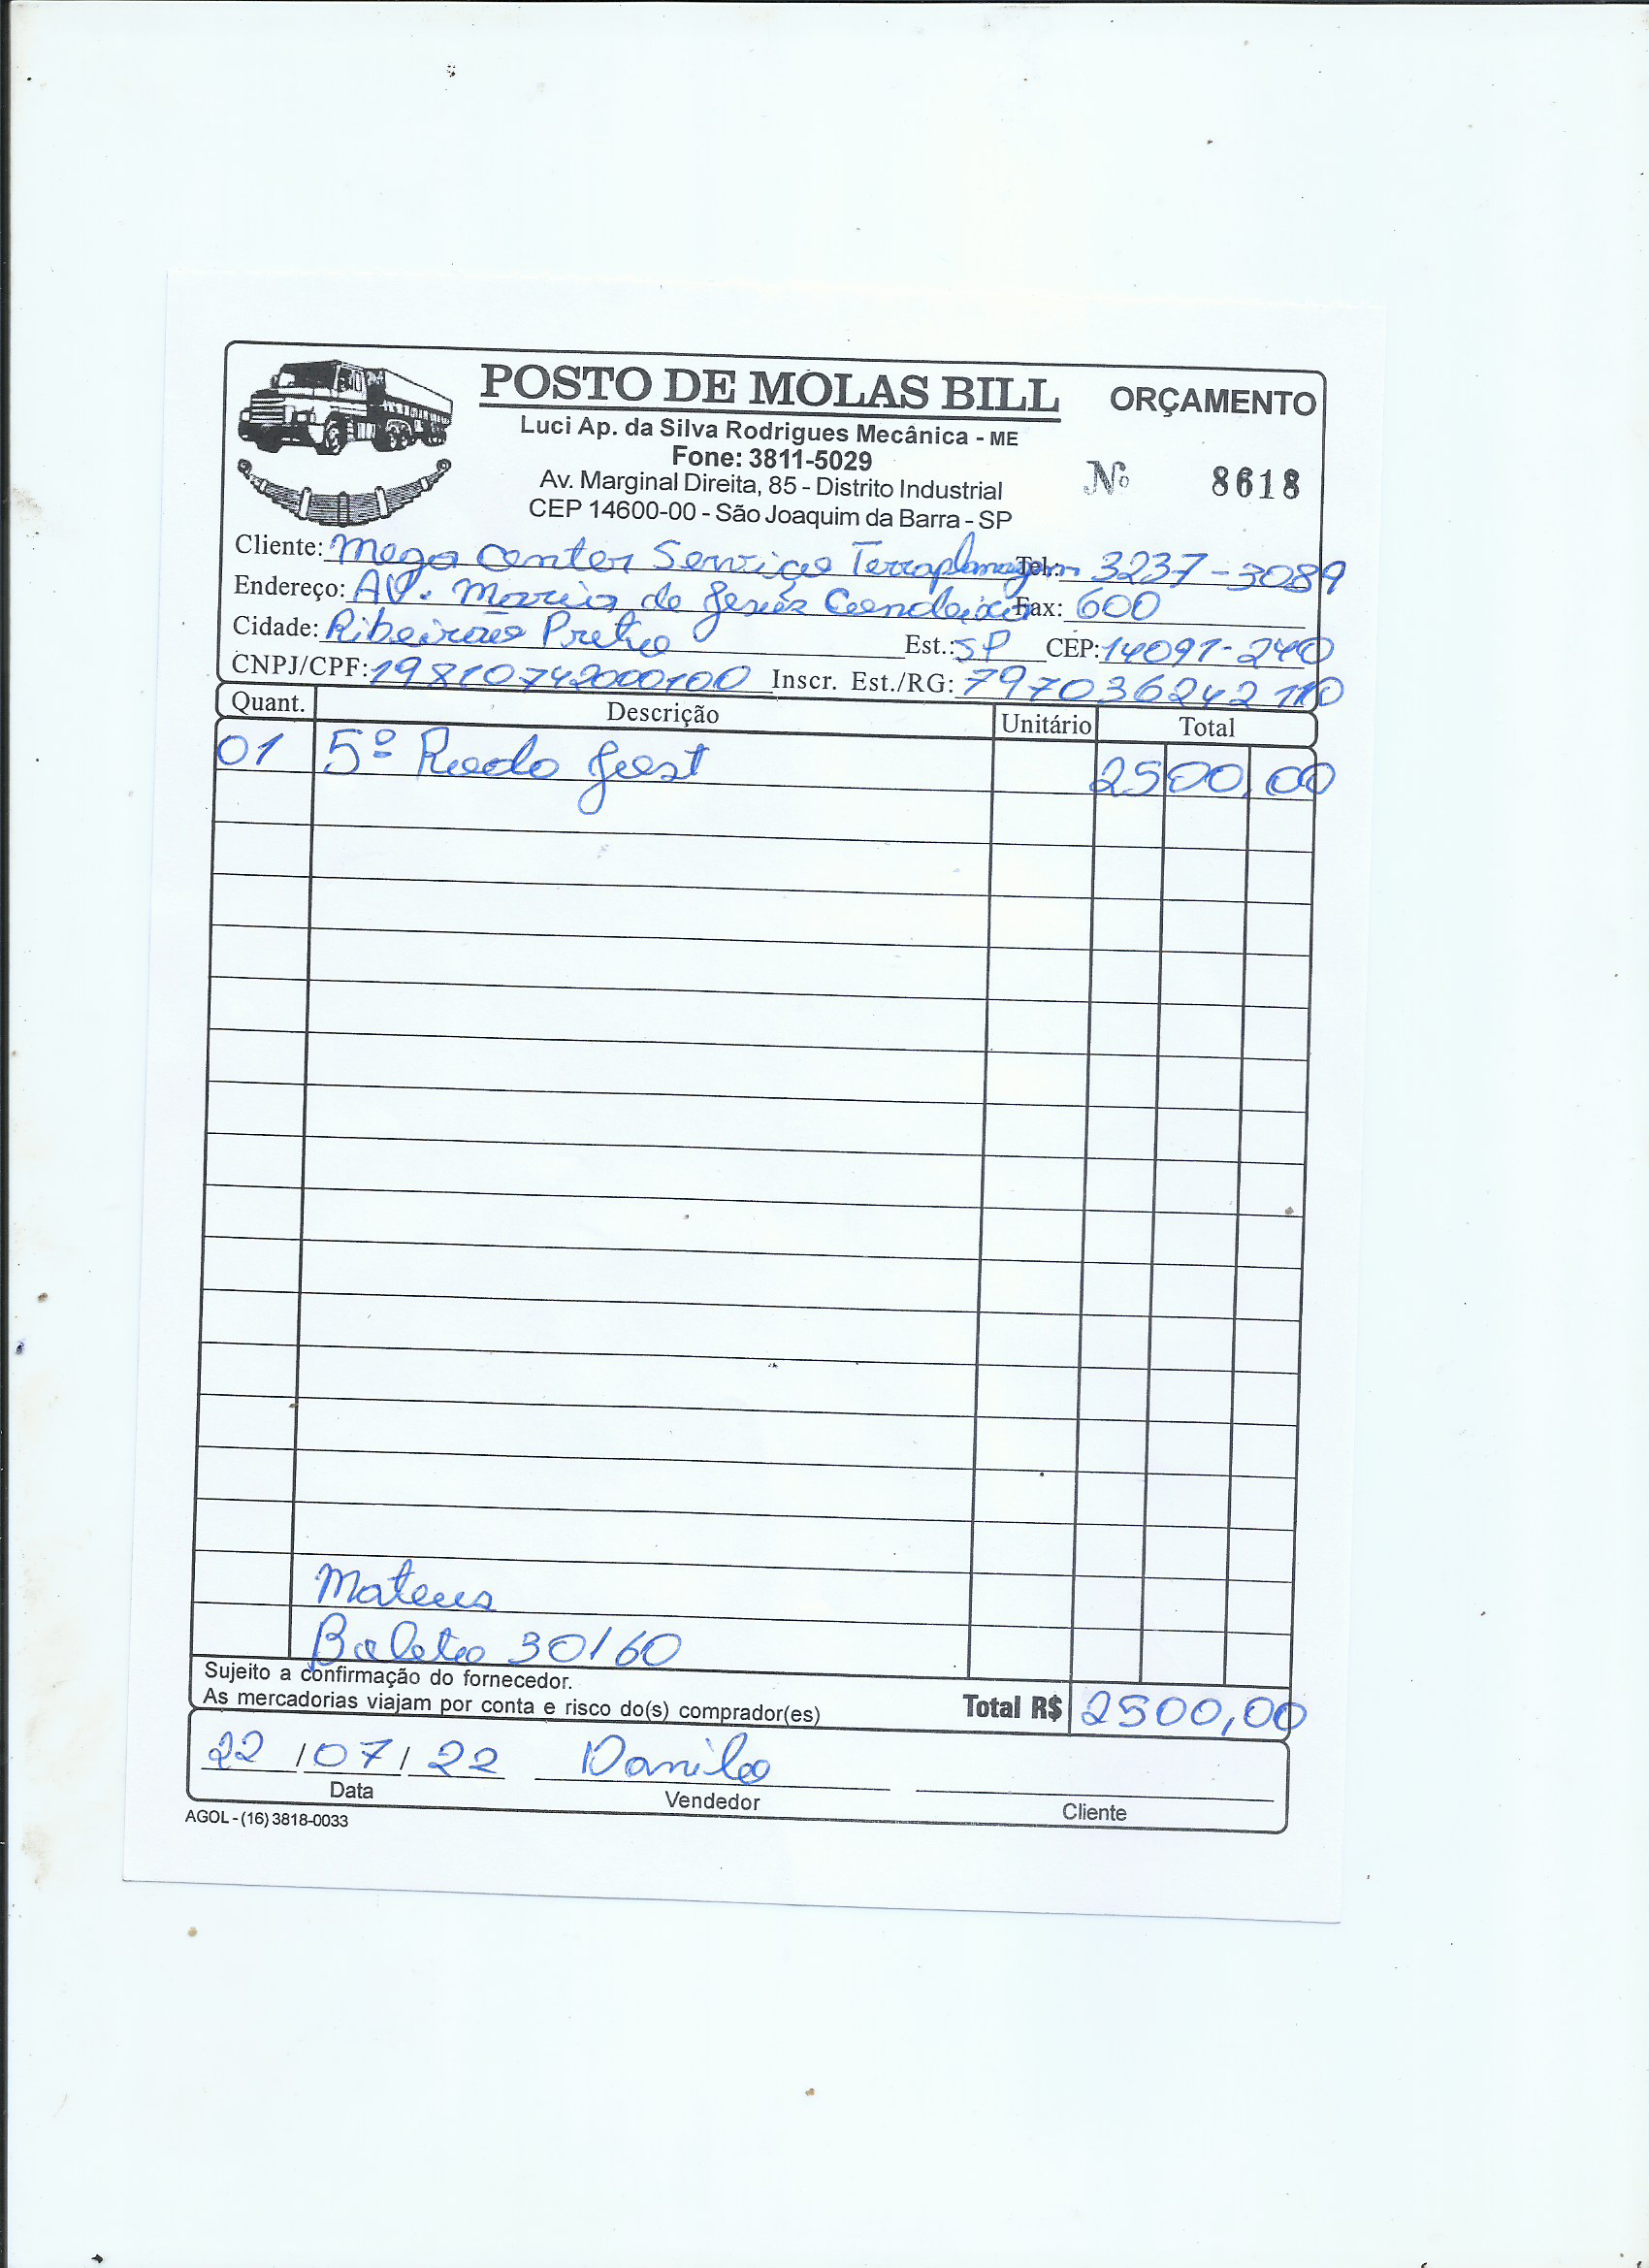 POSTO DE MOLAS BILL ORÇAMENTO
Luci Ap. da Silva Rodrigues Mecânica - ME
Fone: 3811-5029
Av. Marginal Direita, 85 - Distrito Industrial
CEP 14600-00 - São Joaquim da Barra - SP
Nº 8618
Cliente: Mega Center Serviço Terraplanagem Tel.: 3237-3089
Endereço: AV. Maria de Jesus Condeixa Fax: 600
Cidade: Ribeirão Preto Est.: SP CEP: 14091-240
CNPJ/CPF: 19810742000100 Inscr. Est./RG: 797036242110
Quant. Descrição Unitário Total
01 5º Roda Jost 2500,00
Mateus
Boleto 30/60
Sujeito a confirmação do fornecedor.
As mercadorias viajam por conta e risco do(s) comprador(es) Total R$ 2500,00
22/07/22 Danilo
Data Vendedor Cliente
AGOL - (16) 3818-0033